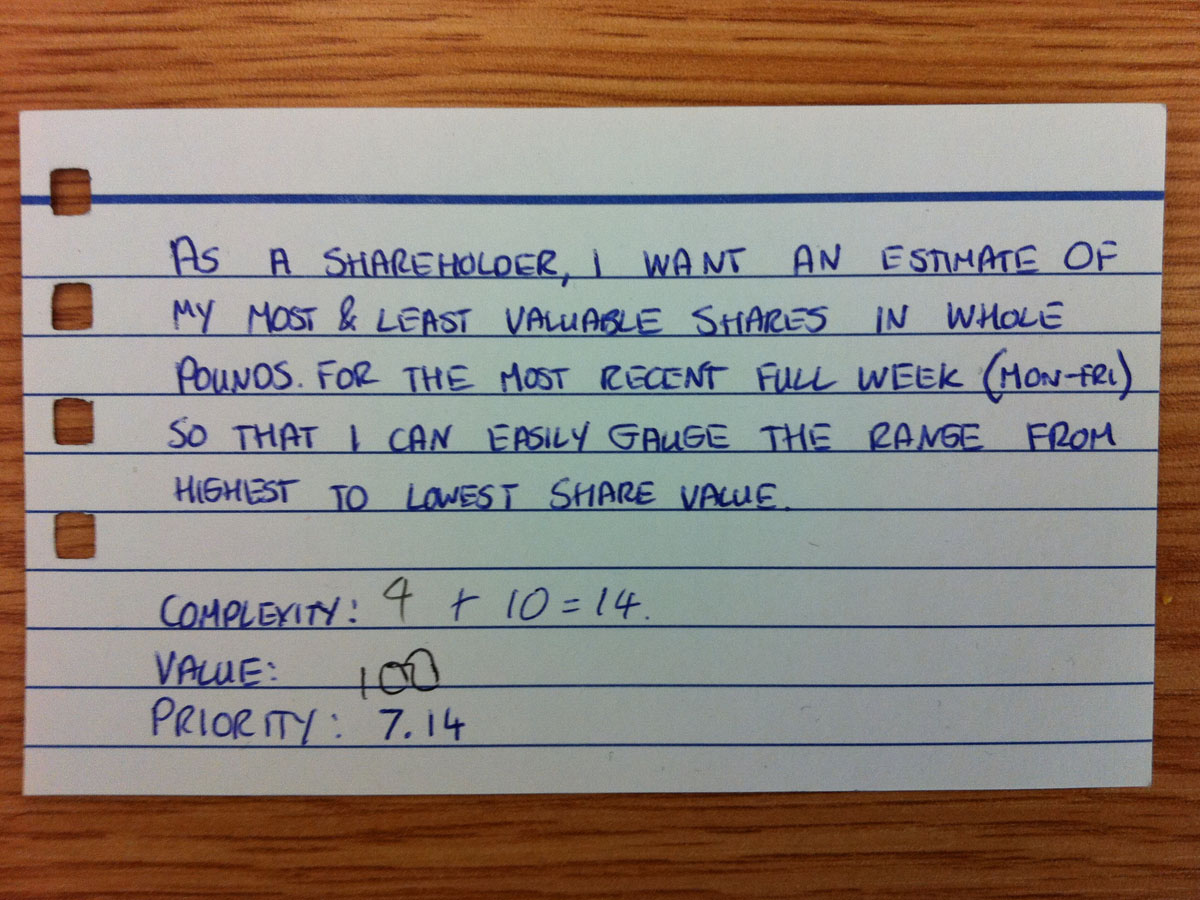 AS A SHAREHOLDER, I WANT AN ESTIMATE OF
MY MOST & LEAST VALUABLE SHARES IN WHOLE
POUNDS. FOR THE MOST RECENT FULL WEEK (MON-FRI)
SO THAT I CAN EASILY GAUGE THE RANGE FROM
HIGHEST TO LOWEST SHARE VALUE.
COMPLEXITY: 4 + 10 = 14.
VALUE: 100
PRIORITY: 7.14